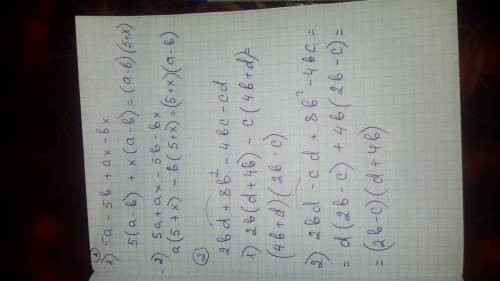 ①
1) 5a - 5b + ax - bx
5(a-b) + x(a-b) = (a-b)(5+x)
2) 5a + ax - 5b - bx
a(5+x) - b(5+x) = (5+x)(a-b)
② 2bd + 8b² - 4bc - cd
1) 2b(d+4b) - c(4b+d) =
(4b+d)(2b-c)
2) 2bd - cd + 8b² - 4bc =
= d(2b-c) + 4b(2b-c) =
= (2b-c)(d+4b)